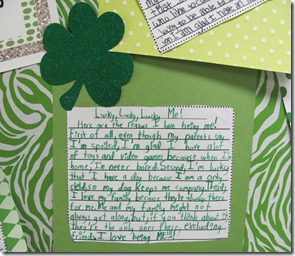 Lucky, Lucky, Lucky Me!
Here are the reasons I love being me!
First of all, even though my parents say
I'm spoiled, I'm glad I have alot
of toys and video games because when I'm
home, I'm never bored. Second I'm lucky
that I have a dog because I am a only
child, so my dog keeps me company. Third,
I love my family because they're always there
for me. Me and my family might not
always get along, but, if you think about it
they're the only ones there, excluding
friends. I love being ME!!!